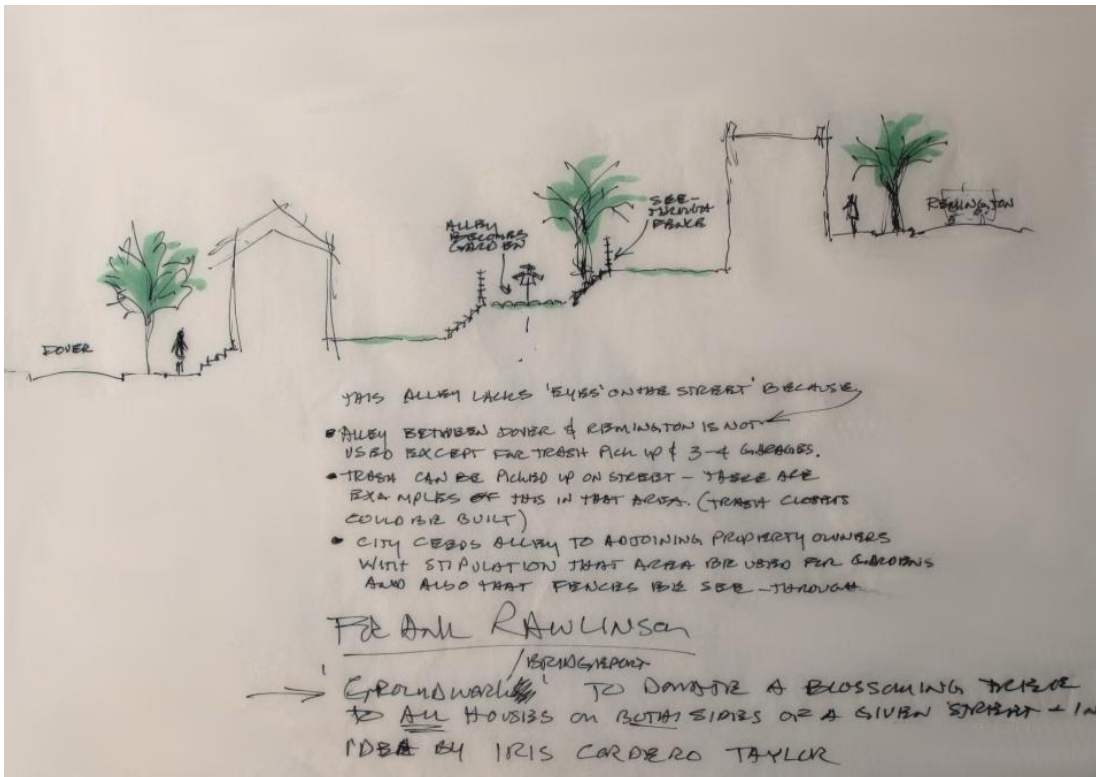 ALLEY
BECOMES
GARDEN
SEE-
THROUGH
FENCE
REMINGTON
DOVER
THIS ALLEY LACKS 'EYES' ON THE STREET' BECAUSE
• ALLEY BETWEEN DOVER & REMINGTON IS NOT
USED EXCEPT FOR TRASH PICK UP & 3-4 GARAGES.
• TRASH CAN BE PICKED UP ON STREET - THERE ARE
EXAMPLES OF THIS IN THAT AREA. (TRASH CLOSETS
COULD BE BUILT)
• CITY CEEDS ALLEY TO ADJOINING PROPERTY OWNERS
WITH STIPULATION THAT AREA BE USED FOR GARDENS
AND ALSO THAT FENCES BE SEE-THROUGH
FRANK RAWLINSON
BRIDGEPORT
'GROUNDWORK' TO DONATE A BLOSSOMING TREE
TO ALL HOUSES ON BOTH SIDES OF A GIVEN STREET - IN
IDEA BY IRIS CORDERO TAYLOR